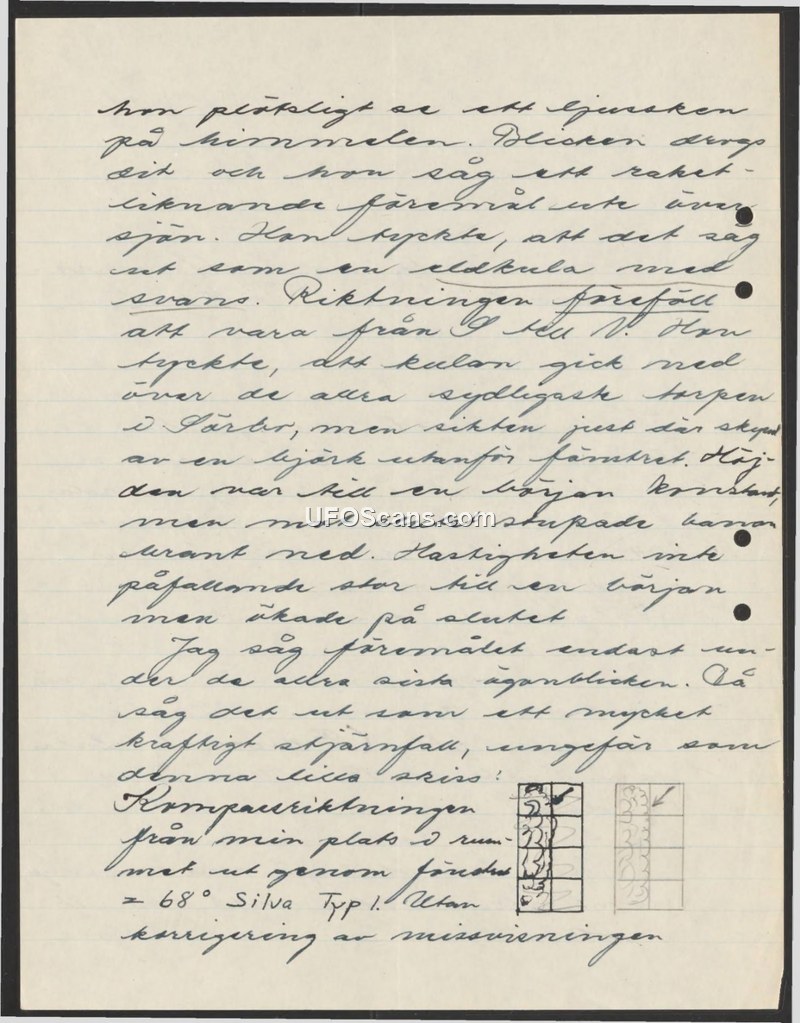 hon plötsligt se ett ljussken
på himmelen. Blicken drogs
dit och hon såg ett raket-
liknande föremål ute över
sjön. Hon tyckte, att det såg
ut som en eldkula med
svans. Riktningen föreföll
att vara från S till N. Hon
tyckte, att kulan gick ned
över de allra sydligaste torpen
i Sörbo, men sikten just där skymd
av en björk utanför fönstret. Höj-
den var till en början konstant,
men mot stupade banan
UFOScans.com
brant ned. Hastigheten inte
påfallande stor till en början
men ökade på slutet
Jag såg föremålet endast un-
der de allra sista ögonblicken. Då
såg det ut som ett mycket
kraftigt stjärnfall, ungefär som
denna lilla skiss:
Kompassriktningen
från min plats i rum-
met ut genom fönstret
= 68° Silva Typ 1. Utan
korrigering av missvisningen